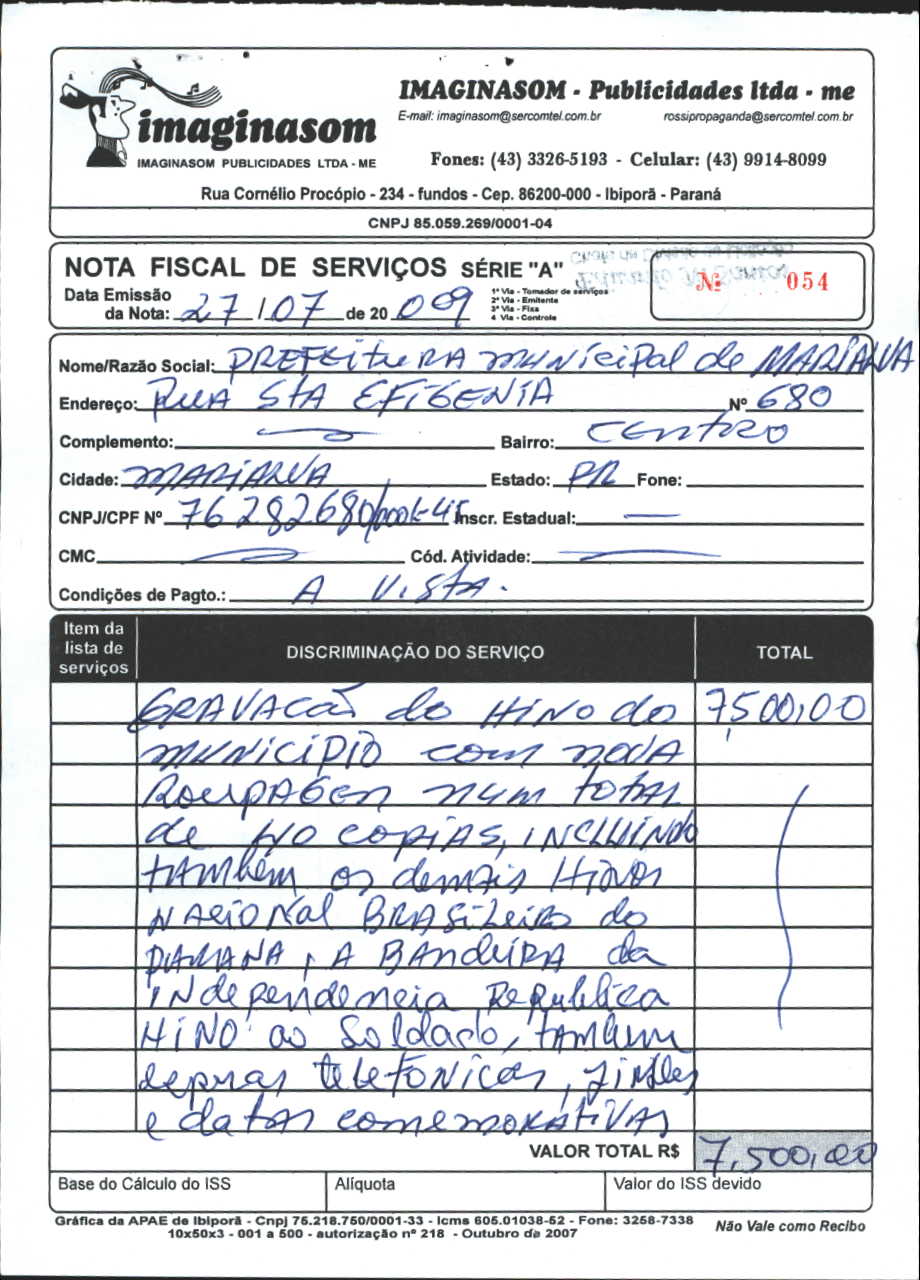 imaginasom
IMAGINASOM PUBLICIDADES LTDA - ME
IMAGINASOM - Publicidades ltda - me
E-mail: imaginasom@sercomtel.com.br rossipropaganda@sercomtel.com.br
Fones: (43) 3326-5193 - Celular: (43) 9914-8099
Rua Cornélio Procópio - 234 - fundos - Cep. 86200-000 - Ibiporã - Paraná
CNPJ 85.059.269/0001-04
NOTA FISCAL DE SERVIÇOS SÉRIE "A"
Data Emissão
da Nota: 27/07 de 20 009
1ª Via - Tomador de serviços
2ª Via - Emitente
3ª Via - Fixa
4 Via - Controle
Nº 054
Nome/Razão Social: PREFEituRA municipal de MARIALVA
Endereço: RUA STA EFIGENIA Nº 680
Complemento: Bairro: CENTRO
Cidade: MARIALVA Estado: PR Fone:
CNPJ/CPF Nº 76 282680/0001-45 Inscr. Estadual:
CMC Cód. Atividade:
Condições de Pagto.: A VISTA.
Item da
lista de
serviços
DISCRIMINAÇÃO DO SERVIÇO TOTAL
GRAVACÃO do HINO do 7,500,00
MUNICIPIO com nova
ROUPAGEN num TOTAL
de COPIAS, INCLUINDO
TAMbém os demais HINOS
NACIONAL BRASILEIRO do
PARANA, A BANdEIRA da
INdependencia REpublica
HINO ao Soldado, TAMbem
TELEFONICAS,
e datas comemorATIVAS
VALOR TOTAL R$ 7,500,00
Base do Cálculo do ISS Alíquota Valor do ISS devido
Gráfica da APAE de Ibiporã - Cnpj 75.218.750/0001-33 - Icms 605.01038-52 - Fone: 3258-7338
10x50x3 - 001 a 500 - autorização nº 218 - Outubro de 2007
Não Vale como Recibo